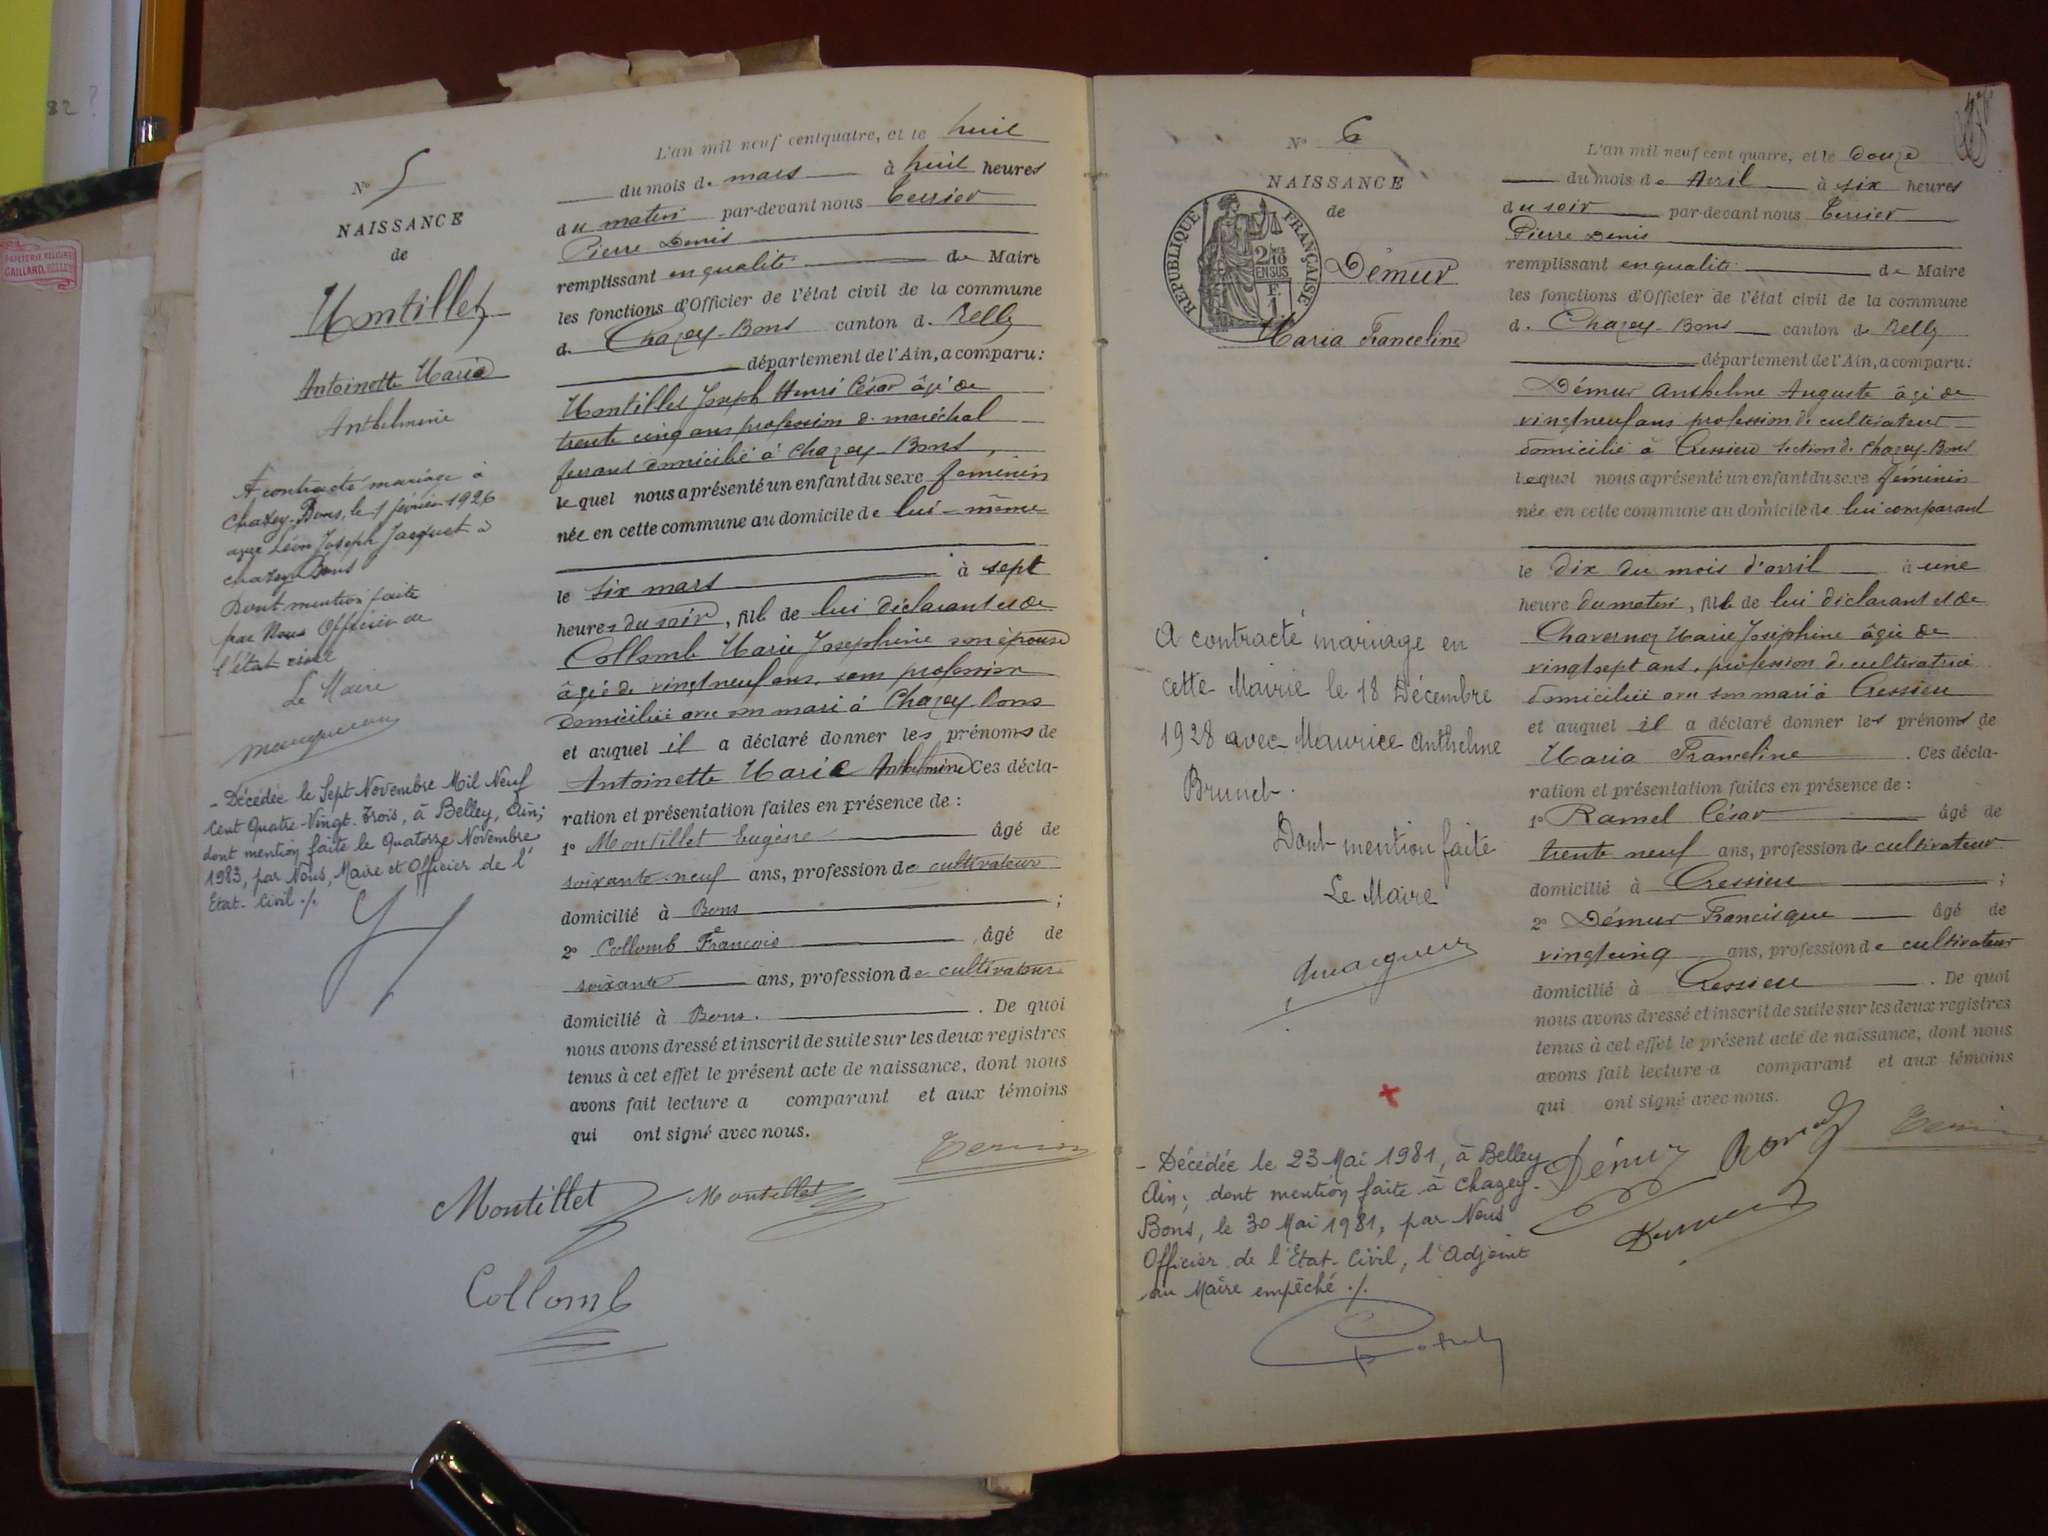 82 ?
PAPETERIE RELIURE
GAILLARD, BELLEY
N° 5
NAISSANCE
de
Montillet
Antoinette Maria
Anthelmine
A contracté mariage à
Chazey-Bons, le 1 février 1926
avec Léon Joseph Jacquet à
Chazey Bons
Dont mention faite
par Nous Officier de
l'état civil
Le Maire
- Décédée le Sept Novembre Mil Neuf
Cent Quatre-Vingt-Trois, à Belley, Ain;
dont mention faite le Quatorze Novembre
1983, par Nous, Maire et Officier de l'
Etat-Civil ./.
L'an mil neuf cent quatre, et le huit
du mois de mars à huit heures
du matin par-devant nous Terrier
Pierre Denis
remplissant en qualité de Maire
les fonctions d'Officier de l'état civil de la commune
de Chazey-Bons canton de Belley
département de l'Ain, a comparu:
Montillet Joseph Henri César âgé de
trente cinq ans profession de maréchal
ferrant domicilié à Chazey-Bons
lequel nous a présenté un enfant du sexe féminin
née en cette commune au domicile de lui-même
le six mars à sept
heures du soir, fille de lui déclarant et de
Collomb Marie Josephine son épouse
âgée de vingt neuf ans, sans profession
domiciliée avec son mari à Chazey-Bons
et auquel il a déclaré donner les prénoms de
Antoinette Maria Anthelmine Ces décla-
ration et présentation faites en présence de :
1° Montillet Eugène âgé de
soixante-neuf ans, profession de cultivateur
domicilié à Bons ;
2° Collomb François âgé de
soixante ans, profession de cultivateur
domicilié à Bons. . De quoi
nous avons dressé et inscrit de suite sur les deux registres
tenus à cet effet le présent acte de naissance, dont nous
avons fait lecture a comparant et aux témoins
qui ont signé avec nous.
Terrier
Montillet Montillet
Collomb
N° 6
NAISSANCE
de
RÉPUBLIQUE FRANÇAISE
2/10
EN SUS
F.
1
Démur
Maria Franceline
A contracté mariage en
cette Mairie le 18 Décembre
1928 avec Maurice Anthelme
Brunet.
Dont mention faite
Le Maire
- Décédée le 23 Mai 1981, à Belley
Ain; dont mention faite à Chazey-
Bons, le 30 Mai 1981, par Nous
Officier de l'Etat-Civil, l'Adjoint
au Maire empêché ./.
L'an mil neuf cent quatre, et le douze
du mois de Avril à six heures
du soir par-devant nous Terrier
Pierre Denis
remplissant en qualité de Maire
les fonctions d'Officier de l'état civil de la commune
de Chazey-Bons canton de Belley
département de l'Ain, a comparu:
Démur Anthelme Auguste âgé de
vingt neuf ans profession de cultivateur
domicilié à Cressieu section de Chazey-Bons
lequel nous a présenté un enfant du sexe féminin
née en cette commune au domicile de lui comparant
le dix du mois d'avril à une
heure du matin, fille de lui déclarant et de
Chavernoz Marie Joséphine âgée de
vingt sept ans, profession de cultivatrice
domiciliée avec son mari à Cressieu
et auquel il a déclaré donner les prénoms de
Maria Franceline . Ces décla-
ration et présentation faites en présence de :
1° Ramel César âgé de
trente neuf ans, profession de cultivateur
domicilié à Cressieu ;
2° Démur Francisque âgé de
vingt cinq ans, profession de cultivateur
domicilié à Cressieu . De quoi
nous avons dressé et inscrit de suite sur les deux registres
tenus à cet effet le présent acte de naissance, dont nous
avons fait lecture a comparant et aux témoins
qui ont signé avec nous.
Démur Ramel Terrier
Demur